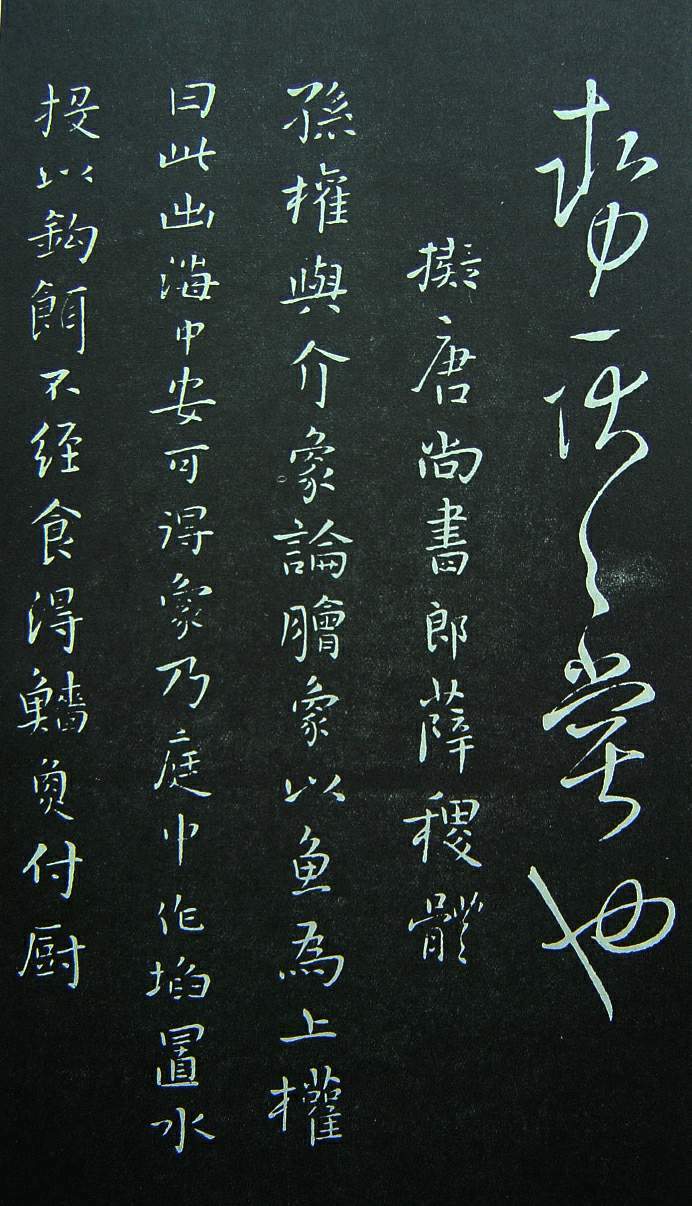 一也
擬唐尚書郎薛稷體
孫權與介象論膾象以魚為上權
曰此出海中安可得象乃庭中作埳置水
投以鈎餌不經食得鯔魚付厨